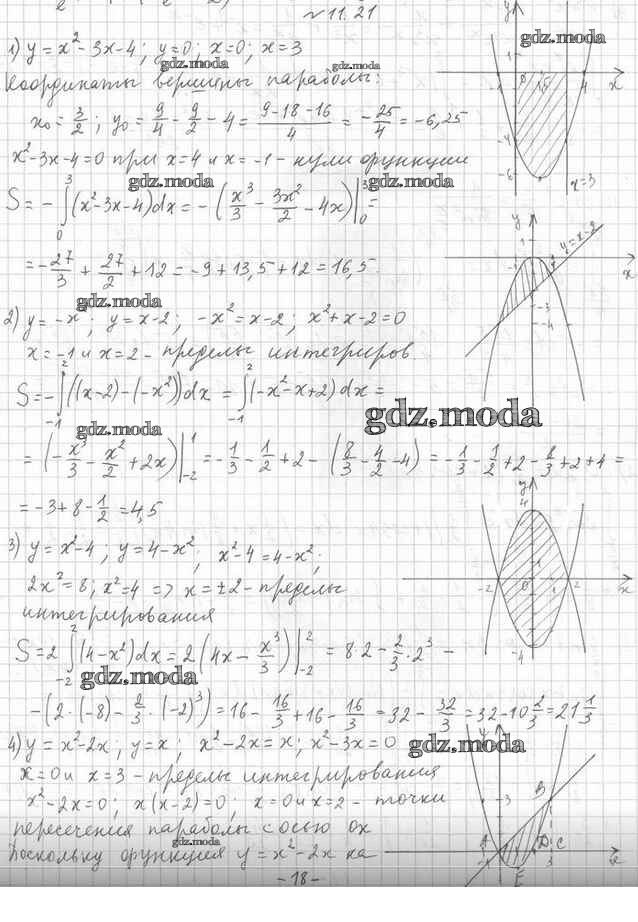 № 11.21
1) y = x² - 3x - 4; y = 0; x = 0; x = 3
Координаты вершины параболы:
x₀ = 3/2; y₀ = 9/4 - 9/2 - 4 = (9-18-16)/4 = -25/4 = -6,25
x² - 3x - 4 = 0 при x = 4 и x = -1 - нули функции
S = -∫₀³(x² - 3x - 4)dx = -(x³/3 - 3x²/2 - 4x)|₀³ =
= -27/3 + 27/2 + 12 = -9 + 13,5 + 12 = 16,5.
2) y = -x²; y = x - 2; -x² = x - 2; x² + x - 2 = 0
x = -1 и x = 2 - пределы интегриров
S = -∫₋₁²((x-2) - (-x²))dx = ∫₋₁²(-x² - x + 2)dx =
= (-x³/3 - x²/2 + 2x)|₋₂¹ = -1/3 - 1/2 + 2 - (8/3 - 4/2 - 4) = -1/3 - 1/2 + 2 - 8/3 + 2 + 4 =
= -3 + 8 - 1/2 = 4,5
3) y = x² - 4; y = 4 - x²; x² - 4 = 4 - x²;
2x² = 8; x² = 4 => x = ±2 - пределы
интегрирования
S = 2∫₋₂²(4 - x²)dx = 2(4x - x³/3)|₋₂² = 8·2 - 2/3·2³ -
-(2·(-8) - 2/3·(-2)³) = 16 - 16/3 + 16 - 16/3 = 32 - 32/3 = 32 - 10 2/3 = 21 1/3
4) y = x² - 2x; y = x; x² - 2x = x; x² - 3x = 0
x = 0 и x = 3 - пределы интегрирования
x² - 2x = 0; x(x-2) = 0; x = 0 и x = 2 - точки
пересечения параболы с осью ox
Поскольку функция y = x² - 2x на
- 18 -
y
1
-1
0
1,5
4
x
-4
-6
x = 3
y
1
y = x - 2
-1
x
-3
-4
y
4
-2
0
1
2
x
-4
y
3
B
A
D
C
-1
3
x
E
gdz.moda
gdz.moda
gdz.moda
gdz.moda
gdz.moda
gdz.moda
gdz.moda
gdz.moda
gdz.moda
gdz.moda
gdz.moda